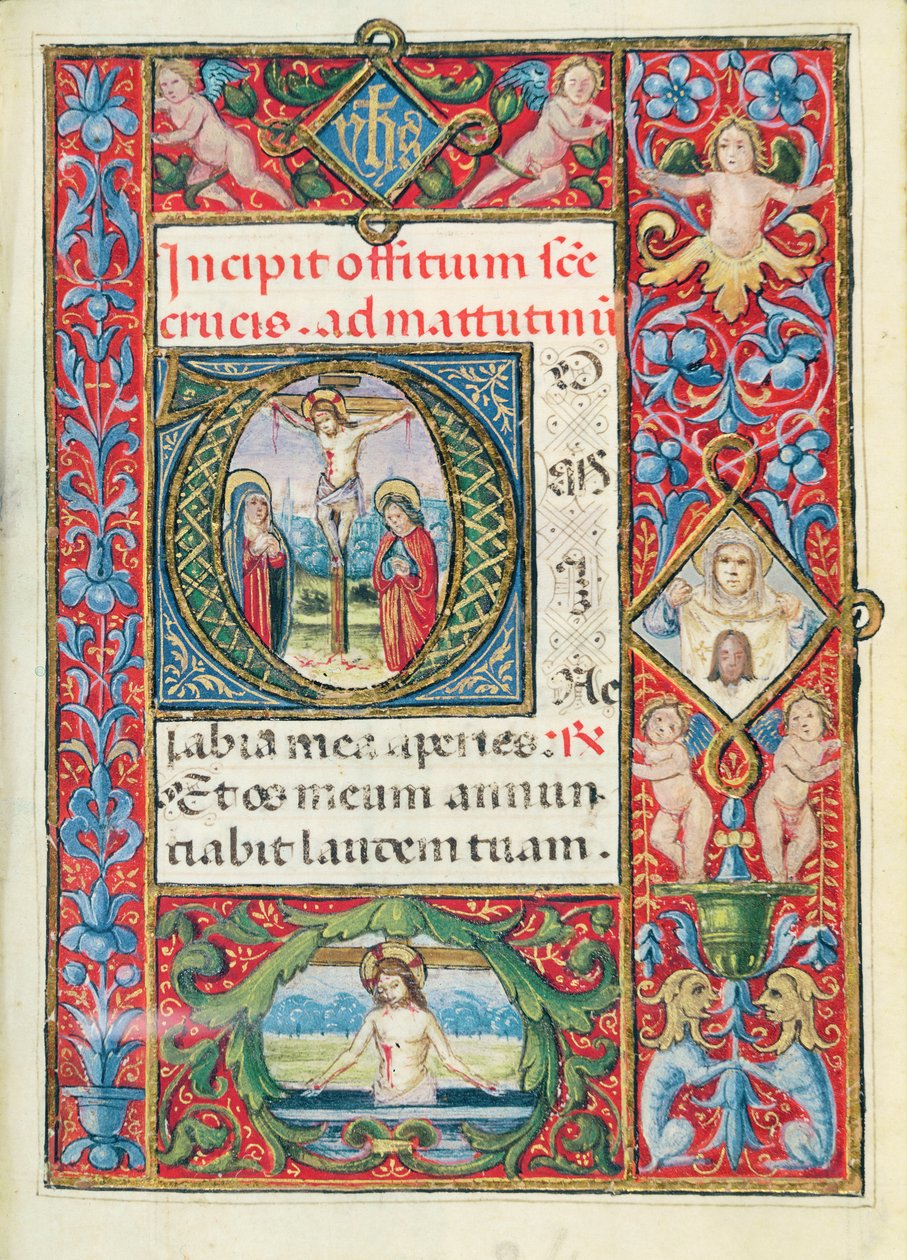 yhs
Incipit offitium sce
crucis. ad mattutinu
D
OM
I
Ne
labia mea aperies: R
Et os meum annun
tiabit laudem tuam.